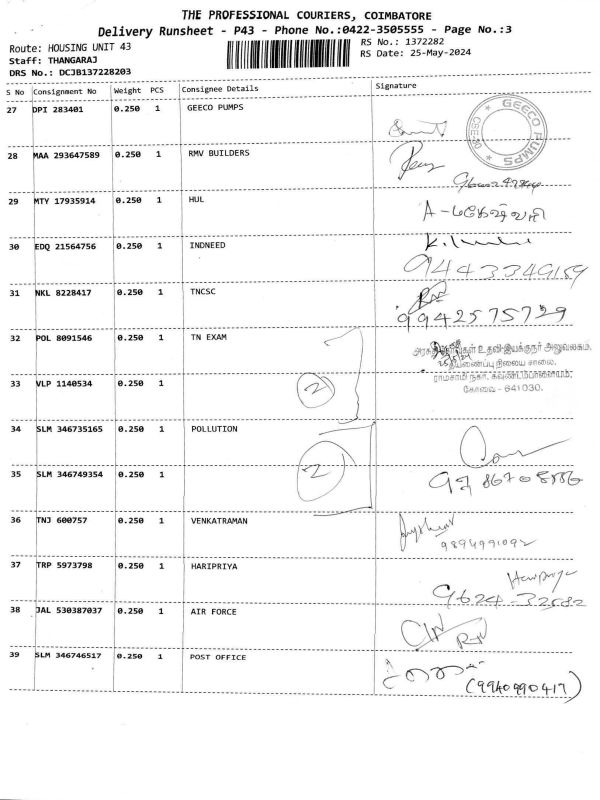 THE PROFESSIONAL COURIERS, COIMBATORE
Delivery Runsheet - P43 - Phone No.:0422-3505555 - Page No.:3
Route: HOUSING UNIT 43
RS No.: 1372282
Staff: THANGARAJ
RS Date: 25-May-2024
DRS No.: DCJB137228203
S No Consignment No Weight PCS Consignee Details Signature
27 DPI 283401 0.250 1 GEECO PUMPS
GEECO PUMPS
28 MAA 293647589 0.250 1 RMV BUILDERS
29 MTY 17935914 0.250 1 HUL
A - மகேஷ்வரி
30 EDQ 21564756 0.250 1 INDNEED
9443349159
31 NKL 8228417 0.250 1 TNCSC
9942575729
32 POL 8091546 0.250 1 TN EXAM
உதவி இயக்குநர் அலுவலகம்,
நிலைய சாலை,
ராமசாமி நகர், கவுண்டம்பாளையம்,
33 VLP 1140534 0.250 1 2
கோவை - 641030.
34 SLM 346735165 0.250 1 POLLUTION
35 SLM 346749354 0.250 1 2
36 TNJ 600757 0.250 1 VENKATRAMAN
9894991092
37 TRP 5973798 0.250 1 HARIPRIYA
Haripriya
9624-32582
38 JAL 530387037 0.250 1 AIR FORCE
39 SLM 346746517 0.250 1 POST OFFICE
(9940990417)